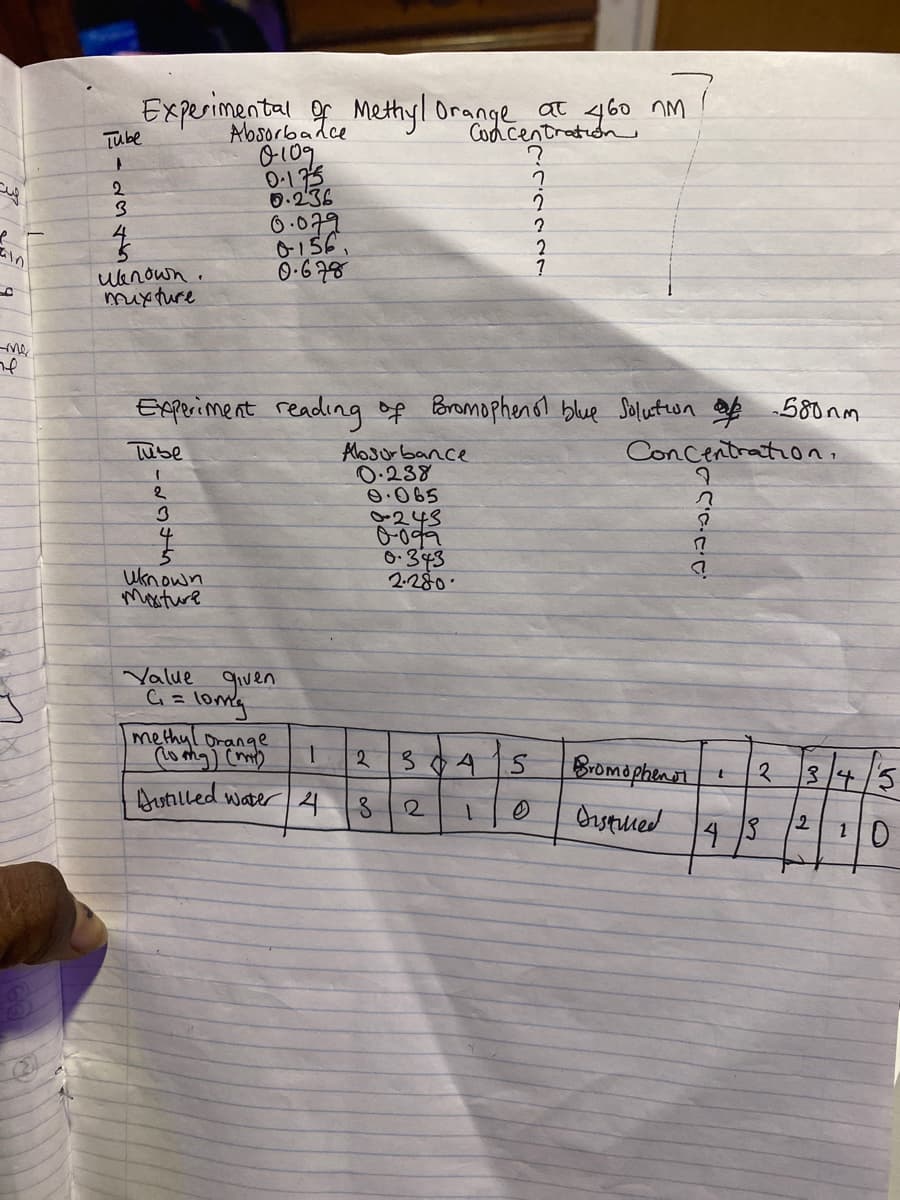 Experimental of Methyl Orange at 460 nM
Tube Absorbance Concentration
1 0.109 ?
2 0.175 ?
3 0.236 ?
4 0.079 ?
5 0.156, ?
uknown. 0.678 ?
mixture
Experiment reading of Bromophenol blue Solution of -580nm
Tube Absorbance Concentration.
1 0.238 ?
2 0.065 ?
3 0.243 ?
4 0.099 ?
5 0.343 ?
uknown 2.280.
Mixture
Value given
C1 = 10mg
methyl orange 1 2 3 4 5 Bromophenol 1 2 3 4 5
(10mg) (ml)
Distilled water 4 3 2 1 0 Distilled 4 3 2 1 0